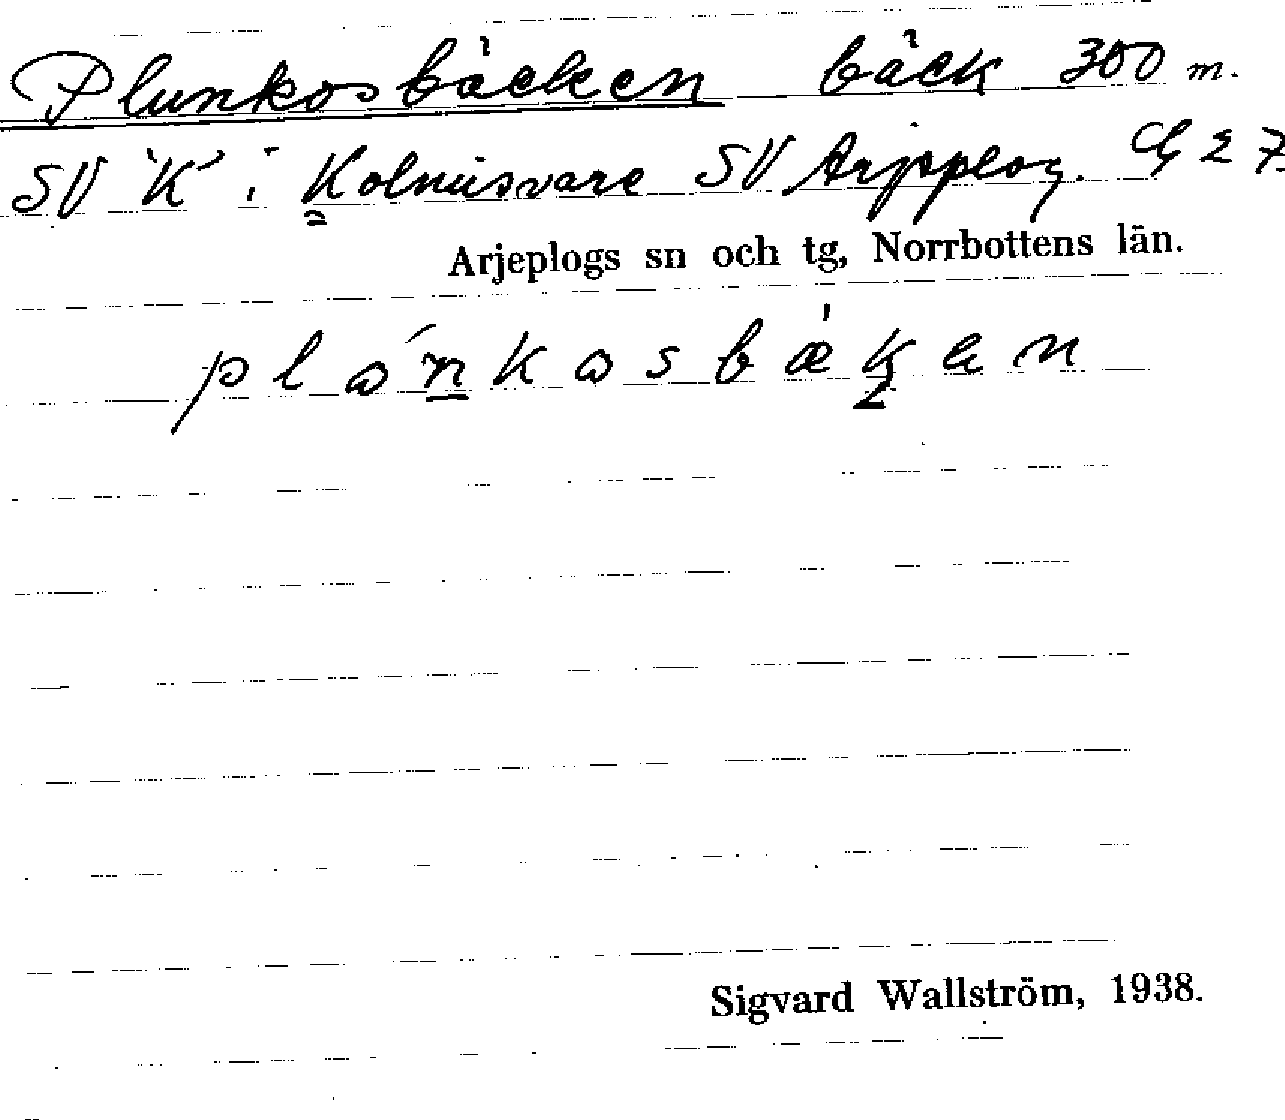 Plunkosbäcken bäck 300 m.
SV "K" i Kolmisvare SV Arjeplog. G 27
Arjeplogs sn och tg, Norrbottens län.
plånkosbækan
Sigvard Wallström, 1938.